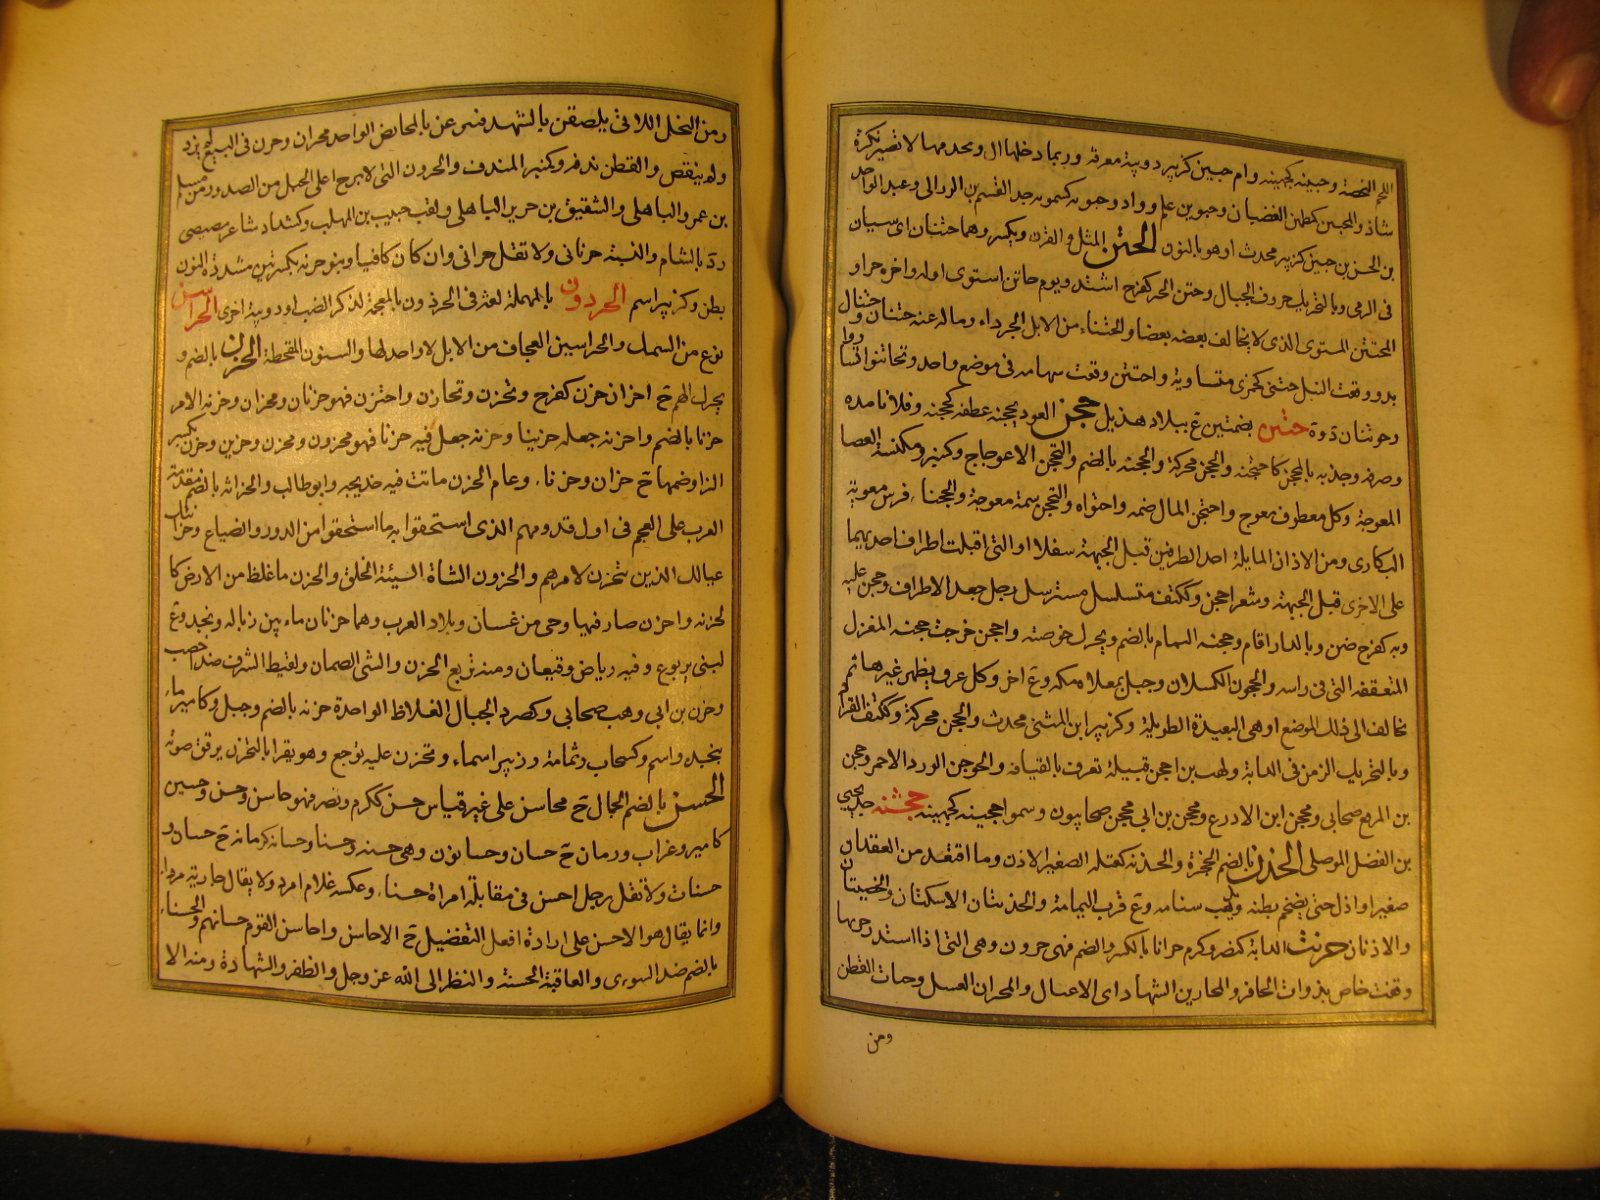 شاذ والمجبن كمطمئن الغضبان وجبوبن علم وواد وجوبه كسمويه جد القسم بن الرد الى وعبد الواحد
بن الحسن بن جبين كزبير محدث او هو بالنون الحتن المثل والقرن ويكسر وهما حتنان اى سيان
فى الرمى وبالتحريك حروف الجبال وحتن الحر كفرح اشتد ويوم حاتن استوى اوله واخره حرا و
المحتتن المستوى الذى لا يخالف بعضه بعضا والحتناء من الابل الجرداء وماله عنه حتنان وحتنال
بدو وقعت النبل حتنى كجمزى متساوية واحتتن وقعت سهامه فى موضع واحد وتحاتنوا تساووا
وحوتنان ة حتن بضمتين ع ببلاد هذيل حجن العود يحجنه عطفه كحجنه وفلانا صده
وصرفه وجذبه بالمحجن كاحتجنه والحجن محركة والحجنه بالضم والتحجن الاعوجاج وكمنبر ومكنسة العصا
المعوجة وكل معطوف معوج واحتجن المال ضمه واحتواه والتحجن سمة معوجة والحجناء فرس معوية
البكاوى ومن الاذان المايلة احد الطرفين قبل الجبهة سفلا او التى اقبلت اطراف احديهما
على الاخرى قبل الجبهة وشعر احجن وككتف متسلسل مسترسل رجل جعد الاطراف وحجن عليه
وبه كفرح ضن وبالدار اقام وحجنه الثمام بالضم ويحرك خوصته واحجن خرجت حجنه المغزل
المتعقفه التى فى راسه والحجون الكسلان وجبل بمعلاه مكه وع اخر وكل غزو يظهر غيرها ثم
تخالف الى ذلك الموضع او هى البعيدة الطويلة وكزبير ابن المثنى محدث والحجن محركة وككتف القراد
وبالتحريك الزمن فى الدابة ولهب بن احجن قبيلة تعرف بالقيافه والحوجن الورد الاحمر وحجن
بن المرقع صحابى ومحجن ابن الادرع ومحجن بن ابى محجن صحابيون وسموا حجينه كجهينه حجشنه جد يحيى
بن الفضل الموصلى الحذن بالضم الحجزة والحذنه كعتله الصغير الاذن وما افتقد من العقدان
والاذنان حرنت الدابة كنصر وكرم حرانا بالكسر والضم فهى حرون وهى التى اذا استدر جريها
وقفت خاص بذوات الحافر والمحارين الشهاد اى الاعسال والمحران العسل وحبات القطن
ومن
ومن النحل اللاتى يلصقن بالشهد فينزعن بالمحابض الواحد محران وحرن فى البيع لم يزد
ولم ينقص والقطن ندفه وكمنبر المندف والحرون التى لا تبرح اعلى الجبل من الصيد وفرس مسلم
بن عمرو الباهلى والشقيق بن جرير الباهلى ولقب حبيب بن المهلب وكشداد شاعر مصيصى
ود بالشام والنسبة حرنانى ولا تقل حرانى وان كان قياسا وبنو حرنه بكسرتين مشددة النون
بطن وكزبير اسم الحردون بالمهملة لغة فى الحرذون بالمعجمة لذكر الضب او دويبة اخرى الحراسين
نوع من السمك والحراسين العجاف من الابل لا واحد لها والسنون المقحطة الحزن بالضم و
يحرك الهم ج احزان حزن كفرح وتحزن وتحازن واحتزن فهو حزنان ومحزان وحزنه الامر
حزنا بالضم واحزنه جعله حزينا وحزنه جعل فيه حزنا فهو محزون ومحزن وحزين وحزن بكسر
الزا وضمها ج حزان وحزناء وعام الحزن ماتت فيه خديجه وابو طالب والحزانة بالضم قدمة
العرب على العجم فى اول قدومهم الذى استحقوا به ما استحقوا من الدور والضياع وحزانتك
عيالك الذين تتحزن لامرهم والحزون الشاة السيئة الخلق والحزن ما غلظ من الارض كا
لحزنه واحزن صار فيها وحى من غسان وبلاد العرب وهما حزنان ما بين زباله ونجد وع
لبنى يربوع وفيه رياض وقيعان ومنه تربع الحزن والشى الصمان ولقيط الشرف ضد اخصب
وحزن بن ابى وهب صحابى وكصرد الجبال الغلاظ الواحدة حزنه بالضم وجبل وكامير ماء
بنجد واسم وكسحاب وثمامة وزبير اسماء وتحزن عليه توجع وهو يقرا بالتحزن يرقق صوته
الحسن بالضم الجمال ج محاسن على غير قياس حسن ككرم ونصر فهو حاسن وحسن وحسين
كامير وغراب ورمان ج حسان وحسانون وهى حسنه وحسنا وحسانه كرمانه ج حسان و
حسنات ولا تقل رجل احسن فى مقابلة امراة حسناء وعكسه غلام امرد ولا يقال جارية مرداء
وانما يقال هو الاحسن على ارادة افعل التفضيل ج الاحاسن واحاسن القوم حسانهم والحسناء
بالضم ضد السوءى والعاقبة الحسنة والنظر الى الله عز وجل والظفر والشهادة ومنه الا